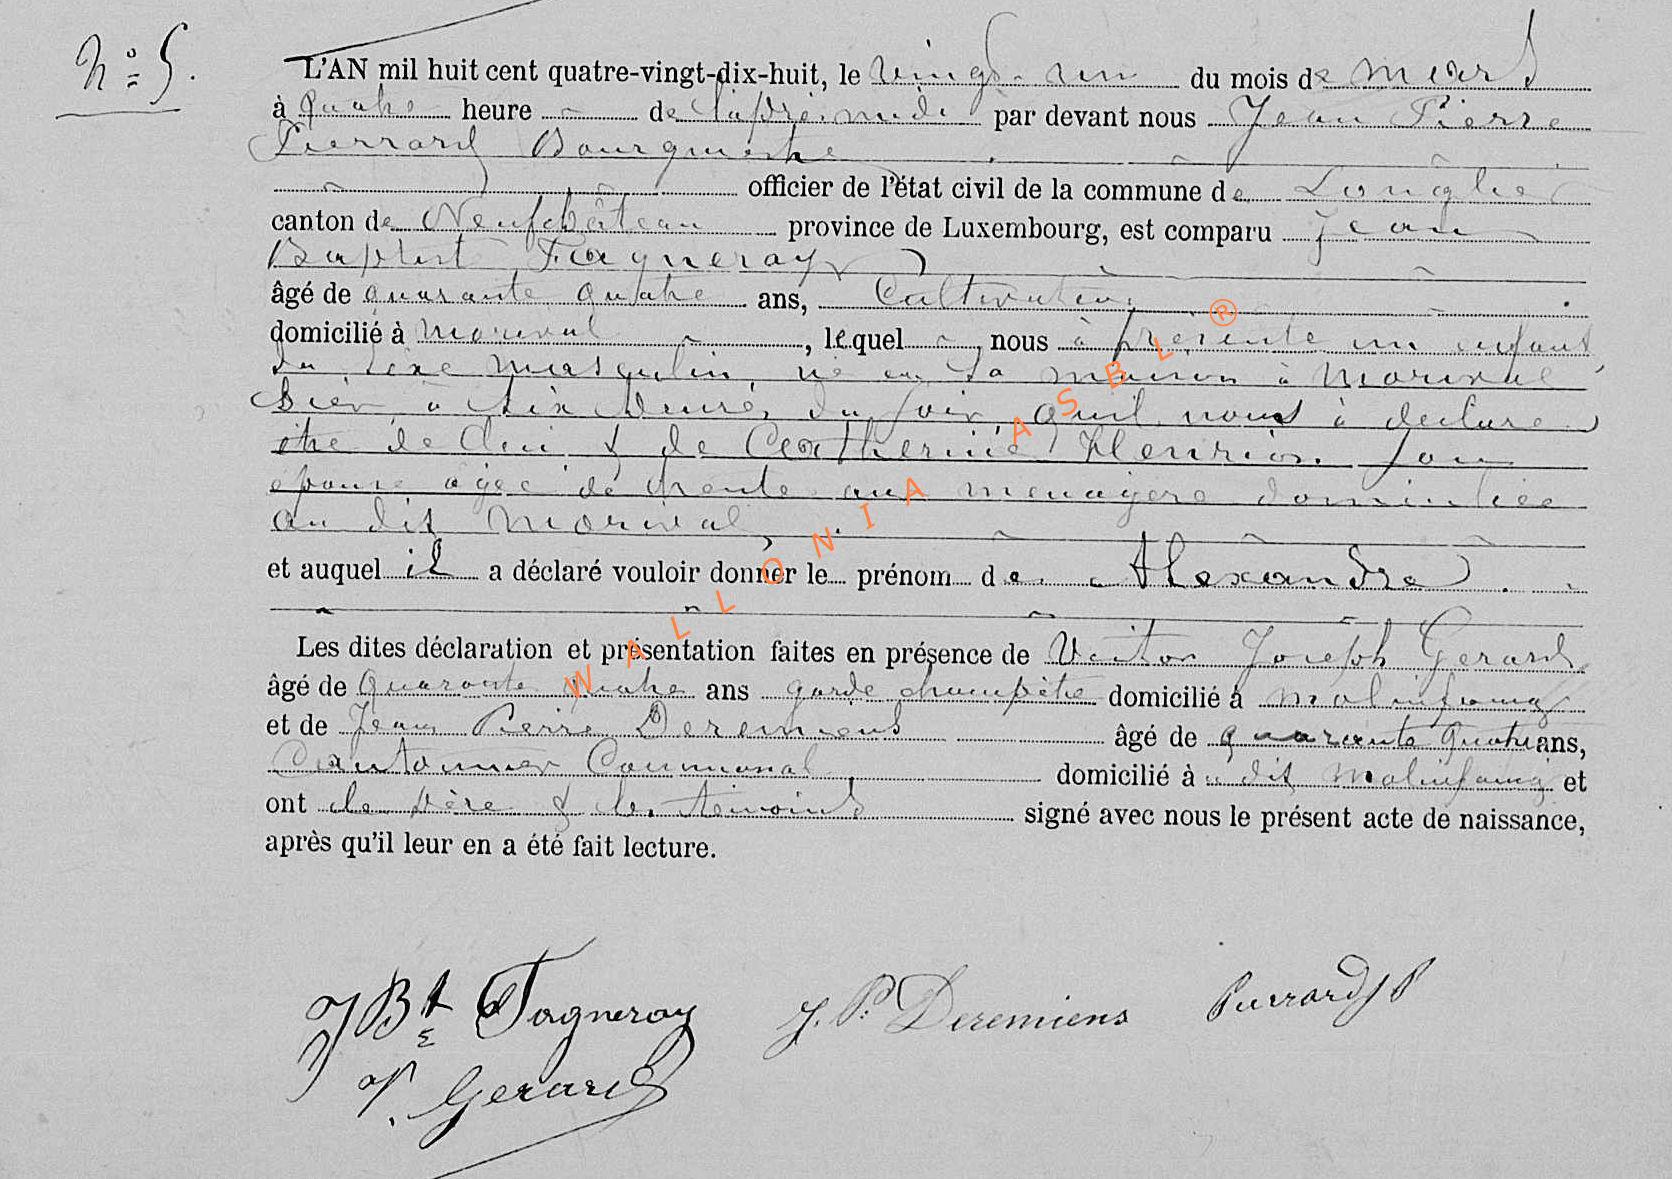 N° 5.
L'AN mil huit cent quatre-vingt-dix-huit, le vingt-un du mois de mars
à quatre heure de l'après-midi par devant nous Jean Pierre
Pierrard Bourgmestre
officier de l'état civil de la commune de Longlier
canton de Neufchâteau province de Luxembourg, est comparu Jean
Baptist Fagneray
âgé de quarante quatre ans, Cultivateur
domicilié à Morival, lequel nous à présenté un enfant
du sexe masculin, né en sa maison à Morival
hier à six heures du soir, qu'il nous à déclaré
être de lui & de Catherine Henrion son
épouse agée de trente ans ménagère domiciliée
au dit Morival
et auquel il a déclaré vouloir donner le prénom de Alexandre
Les dites déclaration et présentation faites en présence de Victor Joseph Gerard
âgé de Quarante quatre ans garde champêtre domicilié à Molinfaing
et de Jean Pierre Deremiens âgé de quarante quatre ans,
Cantonnier Communal domicilié à dit Molinfaing et
ont le père & les témoins signé avec nous le présent acte de naissance,
après qu'il leur en a été fait lecture.
JBte Fagneray J. P. Deremiens Pierrard J P
V. Gerard
WALLONIA ASBL ®